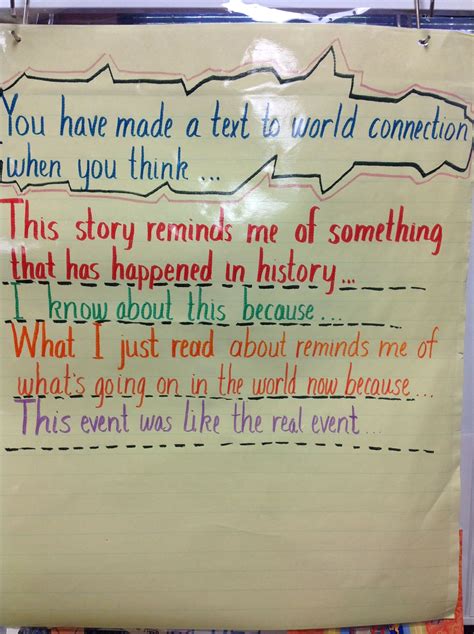 You have made a text to world connection
when you think ...
This story reminds me of something
that has happened in history...
I know about this because...
What I just read about reminds me of
what's going on in the world now because...
This event was like the real event...